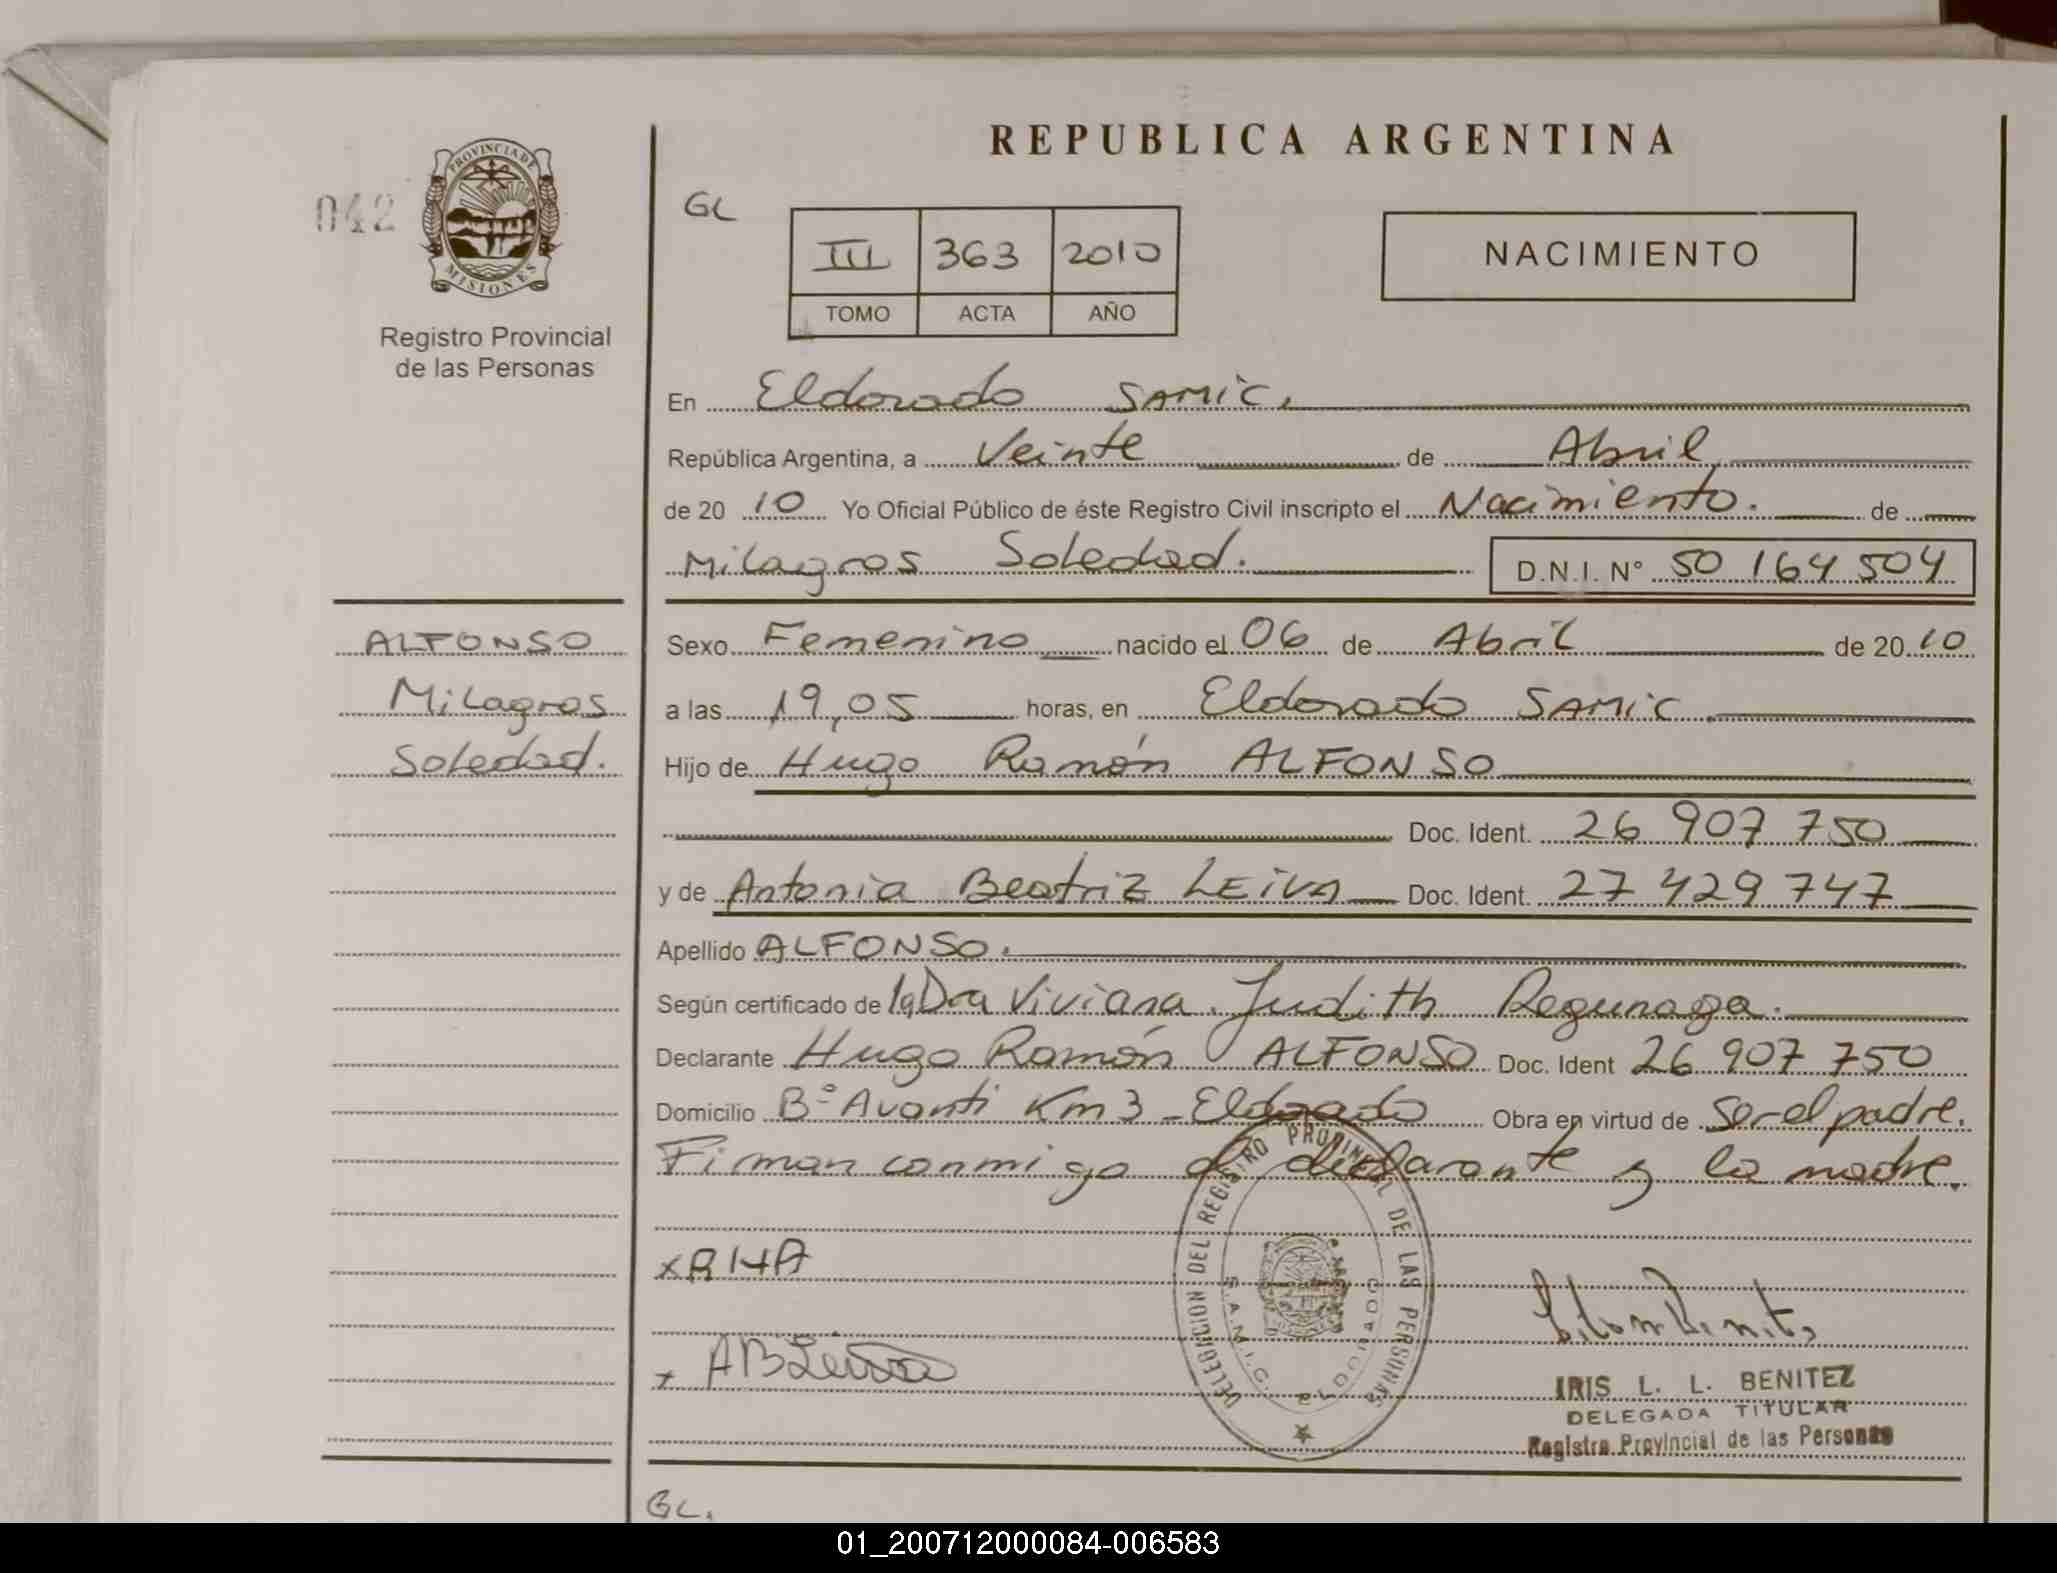 REPUBLICA ARGENTINA
042
PROVINCIA DE
MISIONES
Registro Provincial
de las Personas
GL
III 363 2010
TOMO ACTA AÑO
NACIMIENTO
En Eldorado SAMIC.
República Argentina, a Veinte de Abril
de 20 10 Yo Oficial Público de éste Registro Civil inscripto el Nacimiento. de
Milagros Soledad. D.N.I. N° 50 164 504
ALFONSO
Milagros
Soledad.
Sexo Femenino nacido el 06 de Abril de 20 10
a las 19,05 horas, en Eldorado SAMIC.
Hijo de Hugo Ramón ALFONSO
Doc. Ident. 26 907 750
y de Antonia Beatriz LEIVA Doc. Ident. 27 429 747
Apellido ALFONSO.
Según certificado de la Dra Viviana Judith Regunaga.
Declarante Hugo Ramón ALFONSO Doc. Ident 26 907 750
Domicilio Bº Avanti Km 3 - Eldorado Obra en virtud de Ser el padre.
Firman conmigo el declarante y la madre.
x A H A
x AB Leiva
DELEGACION DEL REGISTRO PROVINCIAL DE LAS PERSONAS
S.A.M.I.C. ELDORADO
IRIS L. L. BENITEZ
DELEGADA TITULAR
Registro Provincial de las Personas
GL.
01_200712000084-006583